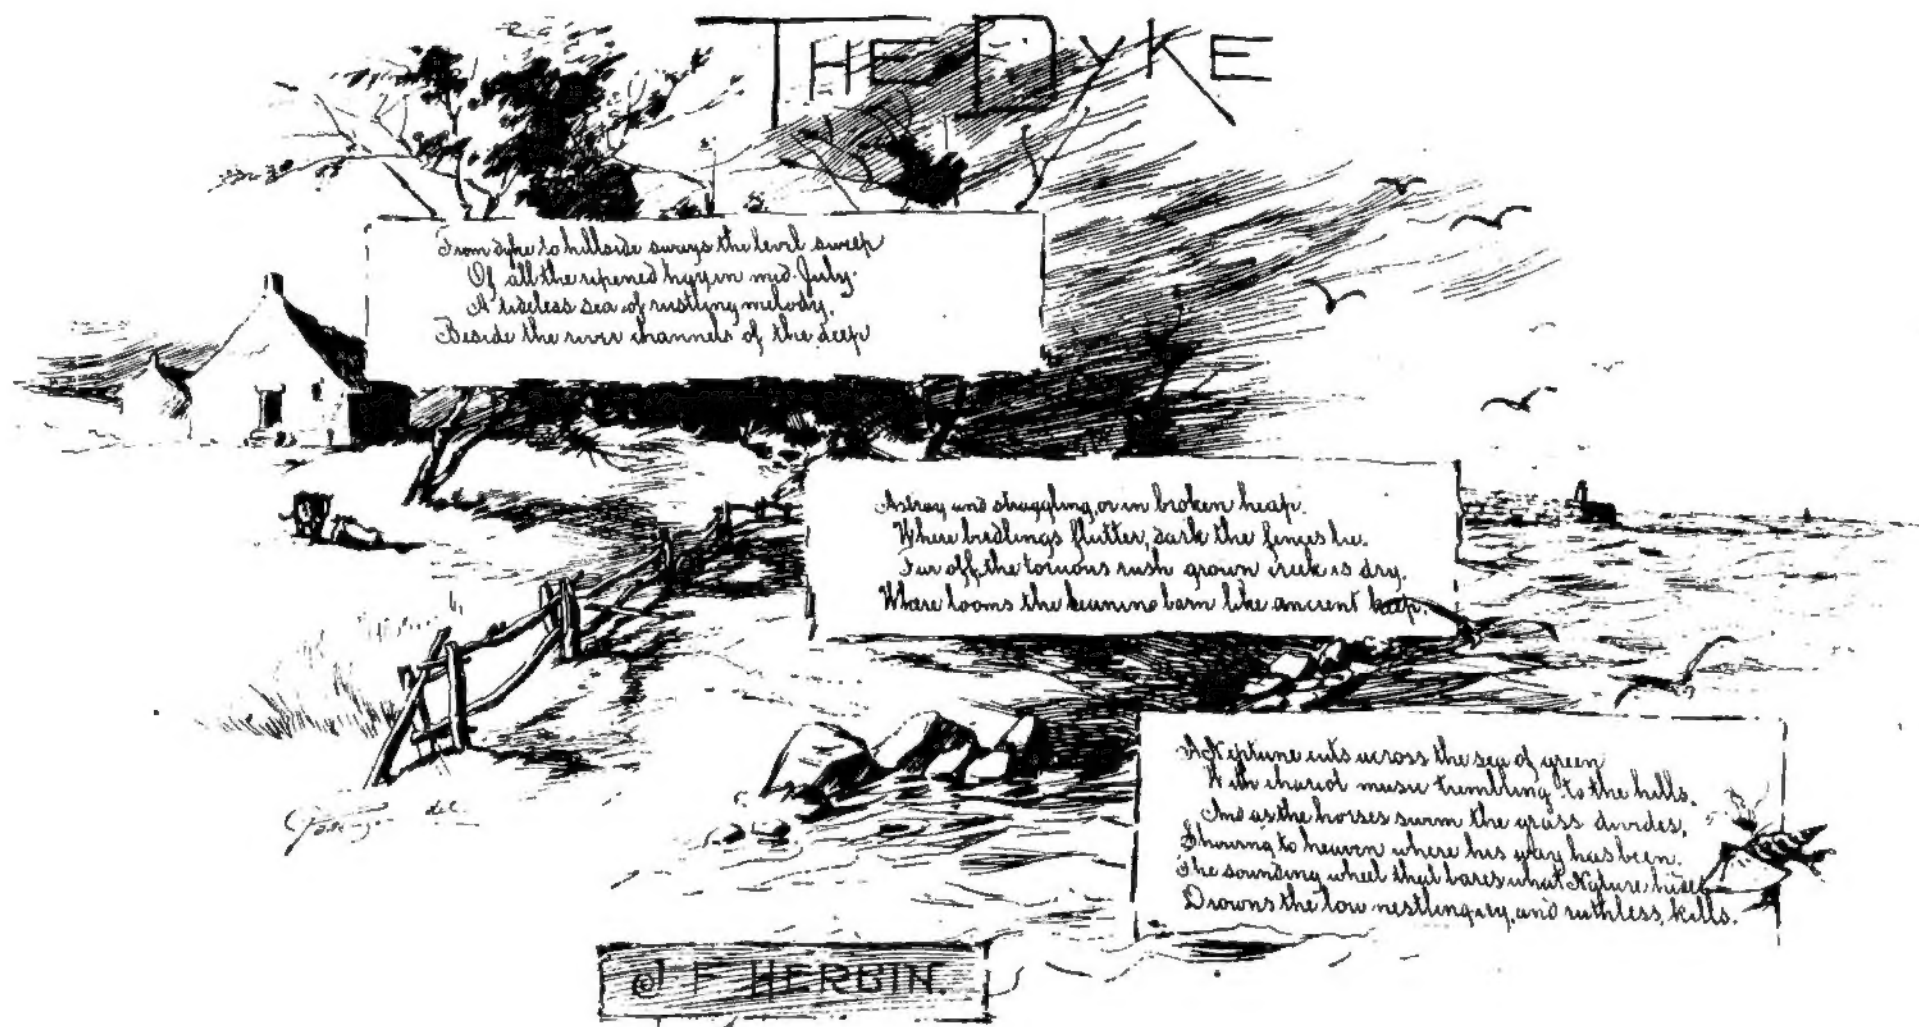 THE DYKE
From dyke to hillside sways the level sweep
Of all the ripened hay in mid-July.
A tideless sea of rustling melody,
Beside the river channels of the deep
Astray and straggling, or in broken heap.
Where birdlings flutter, dark the fences lie.
Far off, the tortuous rush grown creek is dry,
Where looms the leaning barn like ancient keep.
A Neptune cuts across the sea of green
With chariot music trembling to the hills.
And as the horses swim the grass divides,
Showing to heaven where his way has been.
The sounding wheel that bares what Nature hides
Drowns the low nestling cry, and ruthless, kills.
del.
J F HERBIN.